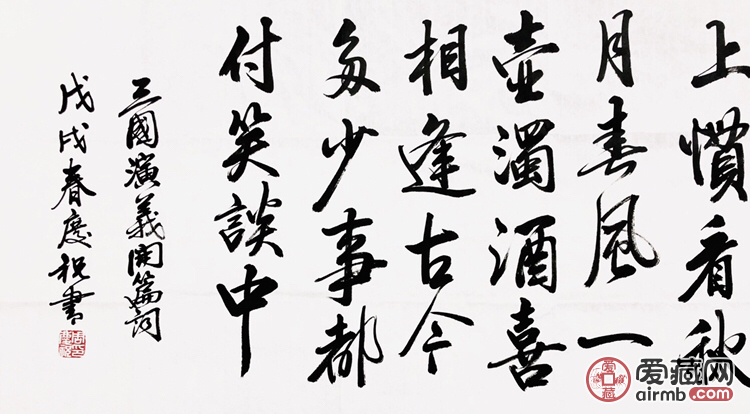 上慣看秋
月春風一
壺濁酒喜
相逢古今
多少事都
付笑談中
三國演義開篇詞
戊戌春慶祝書
爱藏网
airmb.com